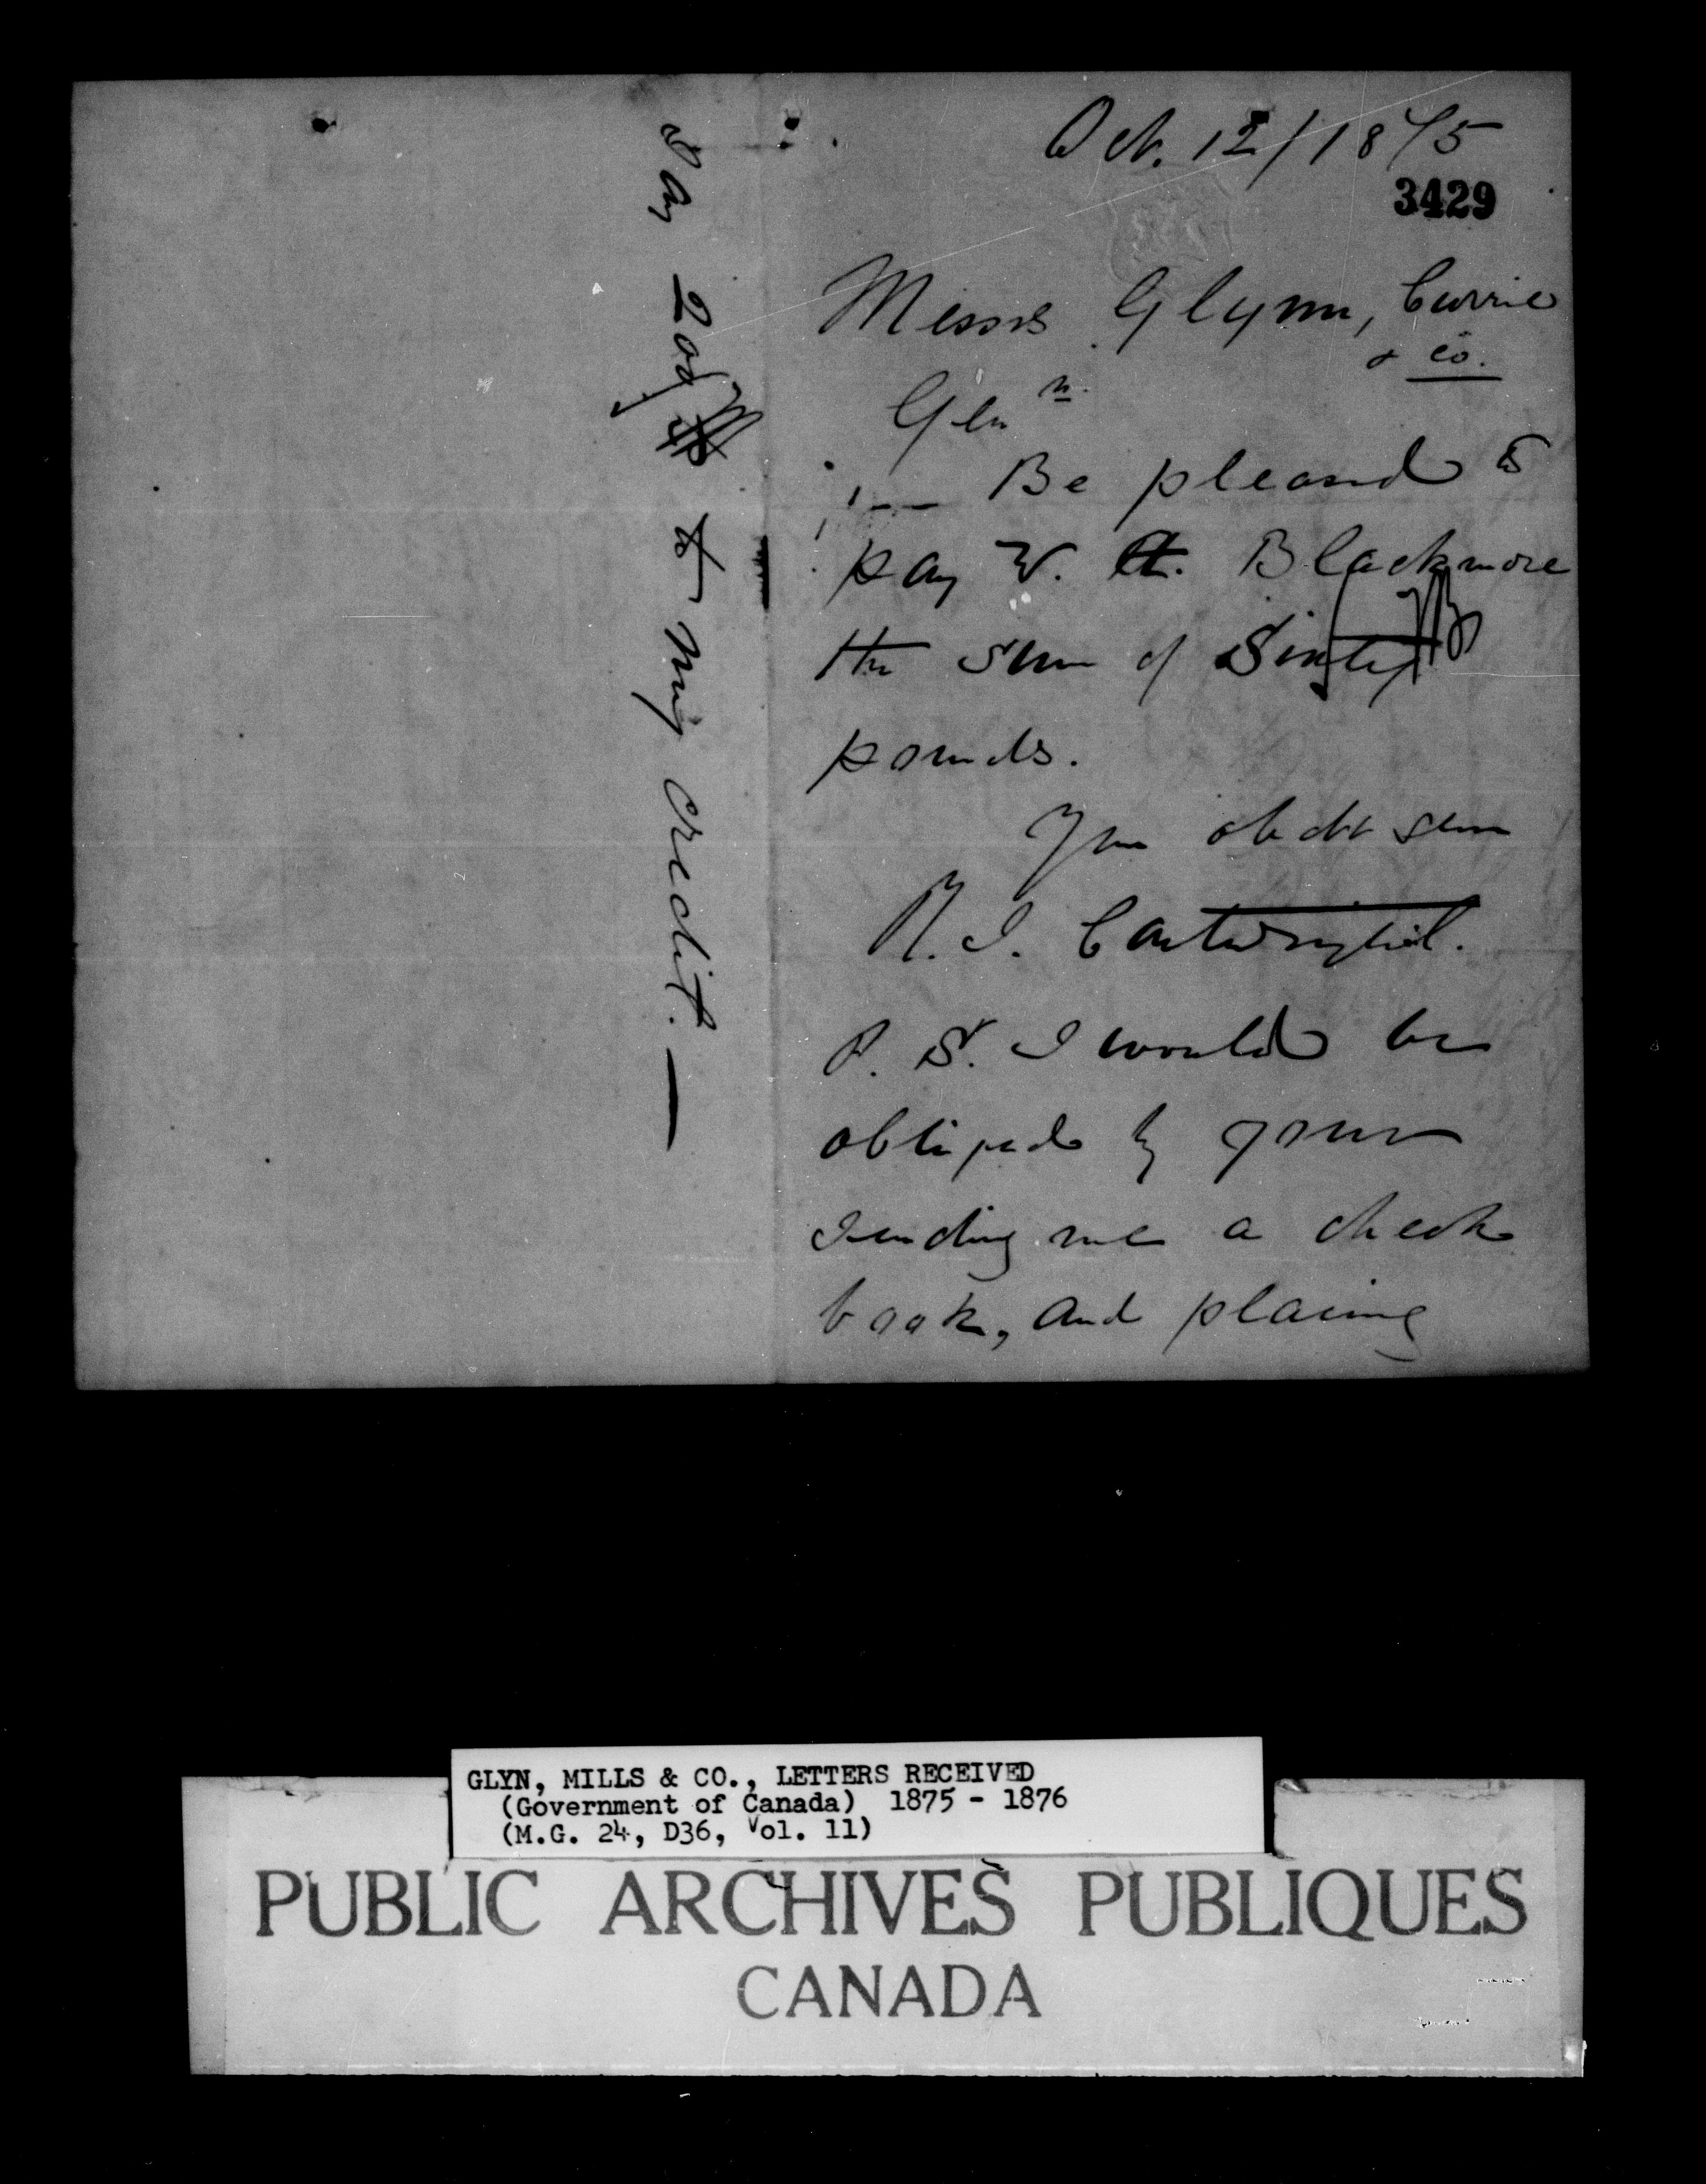 Oct. 12/1875
3429
Messrs Glynn, Currie
& Co.
Gen n.
Be pleased to
pay W. H. Blackmore
the sum of Sixty
pounds.
Your obdt serv
R. J. Cartwright.
P. S. I would be
obliged by your
sending me a check
book, and placing
say 200£ to my credit.
GLYN, MILLS & CO., LETTERS RECEIVED
(Government of Canada) 1875 - 1876
(M.G. 24, D36, Vol. 11)
PUBLIC ARCHIVES PUBLIQUES
CANADA